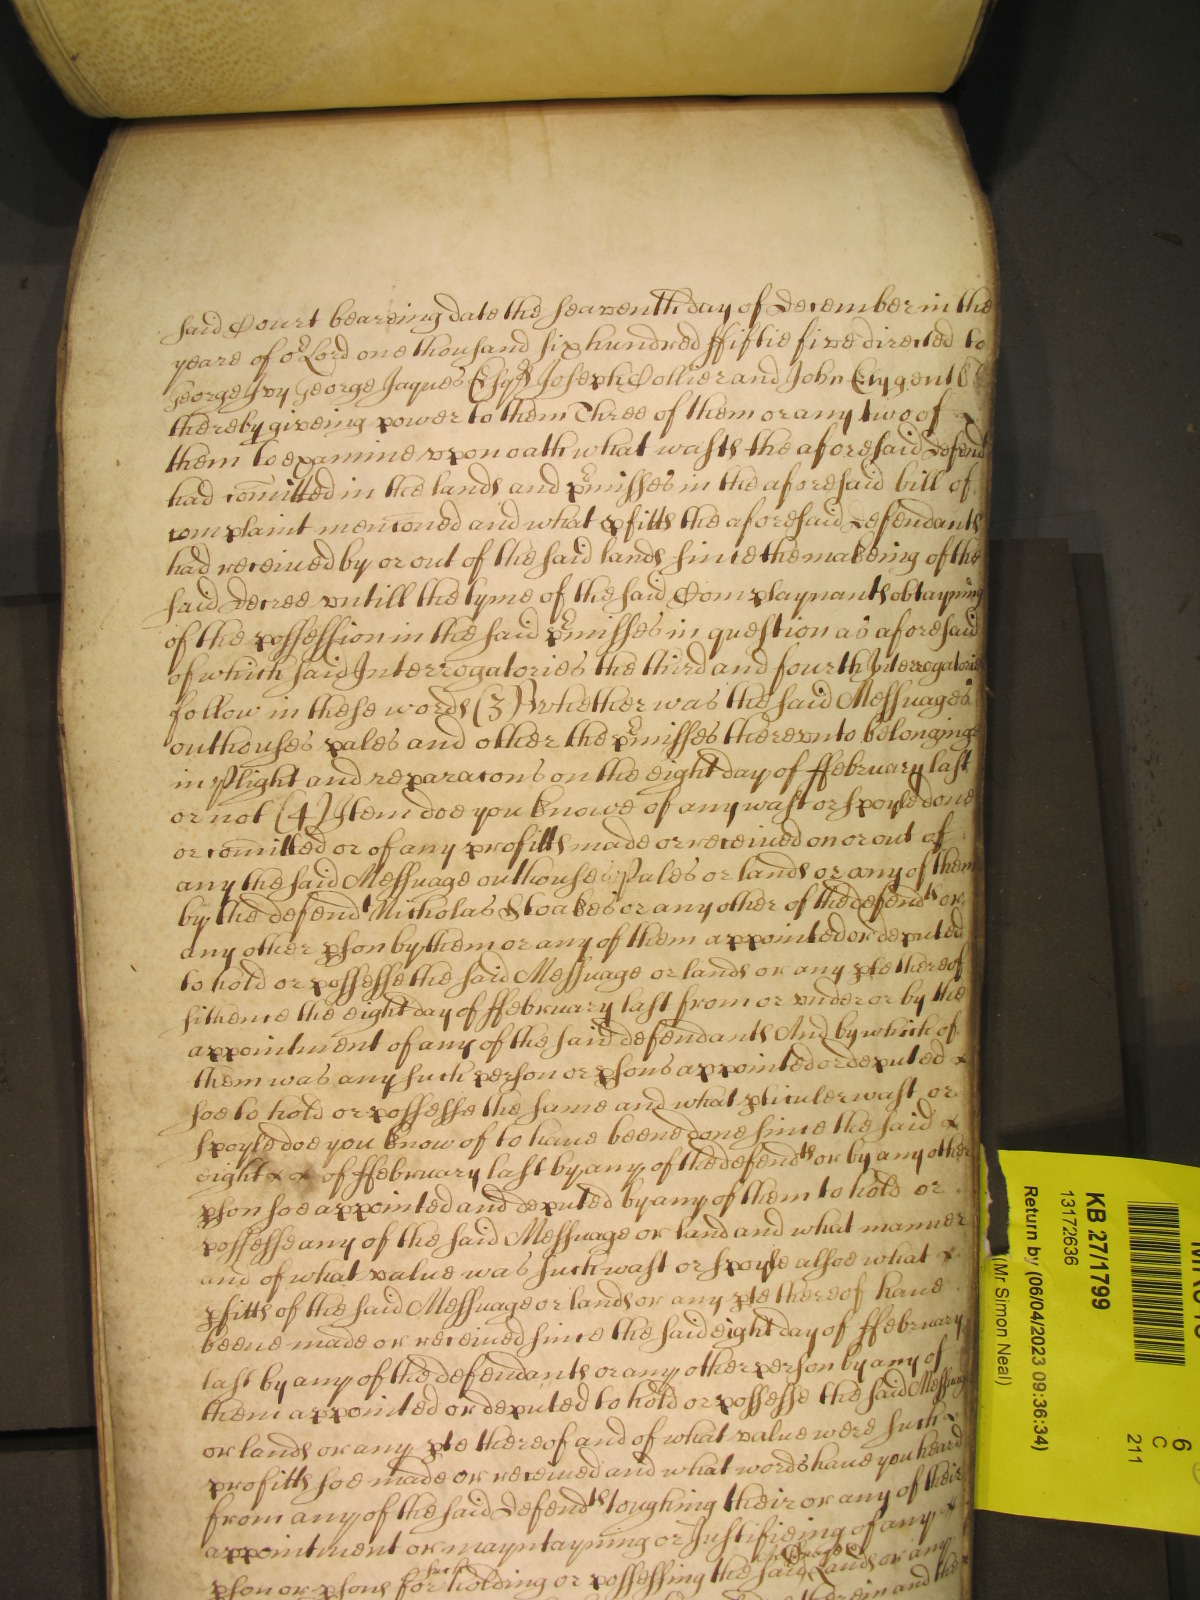 said Court beareing date the seaventh day of December in the
yeare of or Lord one thousand six hundred ffiftie five directed to
George Ivy George Jaques Esqrs Joseph Collier and John Cry gentl
thereby giveing power to them Three of them or any two of
them to examine vpon oath what wasts the aforesaid Defend
had comitted in the lands and pmisses in the aforesaid bill of
complaint mencioned and what pfitts the aforesaid Defendants
had receiued by or out of the said lands since the makeing of the
said decree vntill the tyme of the said Complaynants obtayning
of the possession in the said pmisses in question as aforesaid
of which said Interrogatories the third and fourth Interrogatories
follow in these words (3) Whether was the said Messuages
outhouses pales and other the pmisses therevnto belonginge
in Plight and reparacons on the eight day of ffebruary last
or not (4) Item doe you knowe of any wast or spoyle done
or comitted or of any profitts made or receiued on or out of
any the said Messuage outhouses Pales or lands or any of them
by the defendt Nicholas Stoakes or any other of the defendts or
any other pson by them or any of them appointed or deputed
to hold or possesse the said Messuage or lands or any pte thereof
sithence the eight day of ffebruary last from or vnder or by the
appointment of any of the said defendants And by which of
them was any such person or psons appointed or deputed
soe to hold or possesse the same and what pticuler wast or
spoyle doe you know of to haue beene done since the said
eight of ffebruary last by any of the defendts or by any other
pson soe appointed and deputed by any of them to hold or
possesse any of the said Messuage or land and what manner
and of what value was such wast or spoyle alsoe what
pfitts of the said Messuage or lands or any pte thereof haue
beene made or receiued since the said eight day of ffebruary
last by any of the defendants or any other person by any of
them appointed or deputed to hold or possesse the said Messuage
or lands or any pte thereof and of what value were such
profitts soe made or receiued and what words haue you heard
from any of the said Defendts touching their or any of their
appointment or mayntayning or Justifieing of any
pson or psons for such holding or possessing the said Lands or any
therein and the
KB 27/1799
13172636
Return by (06/04/2023 09:36:34)
(Mr Simon Neal)
6
C
211